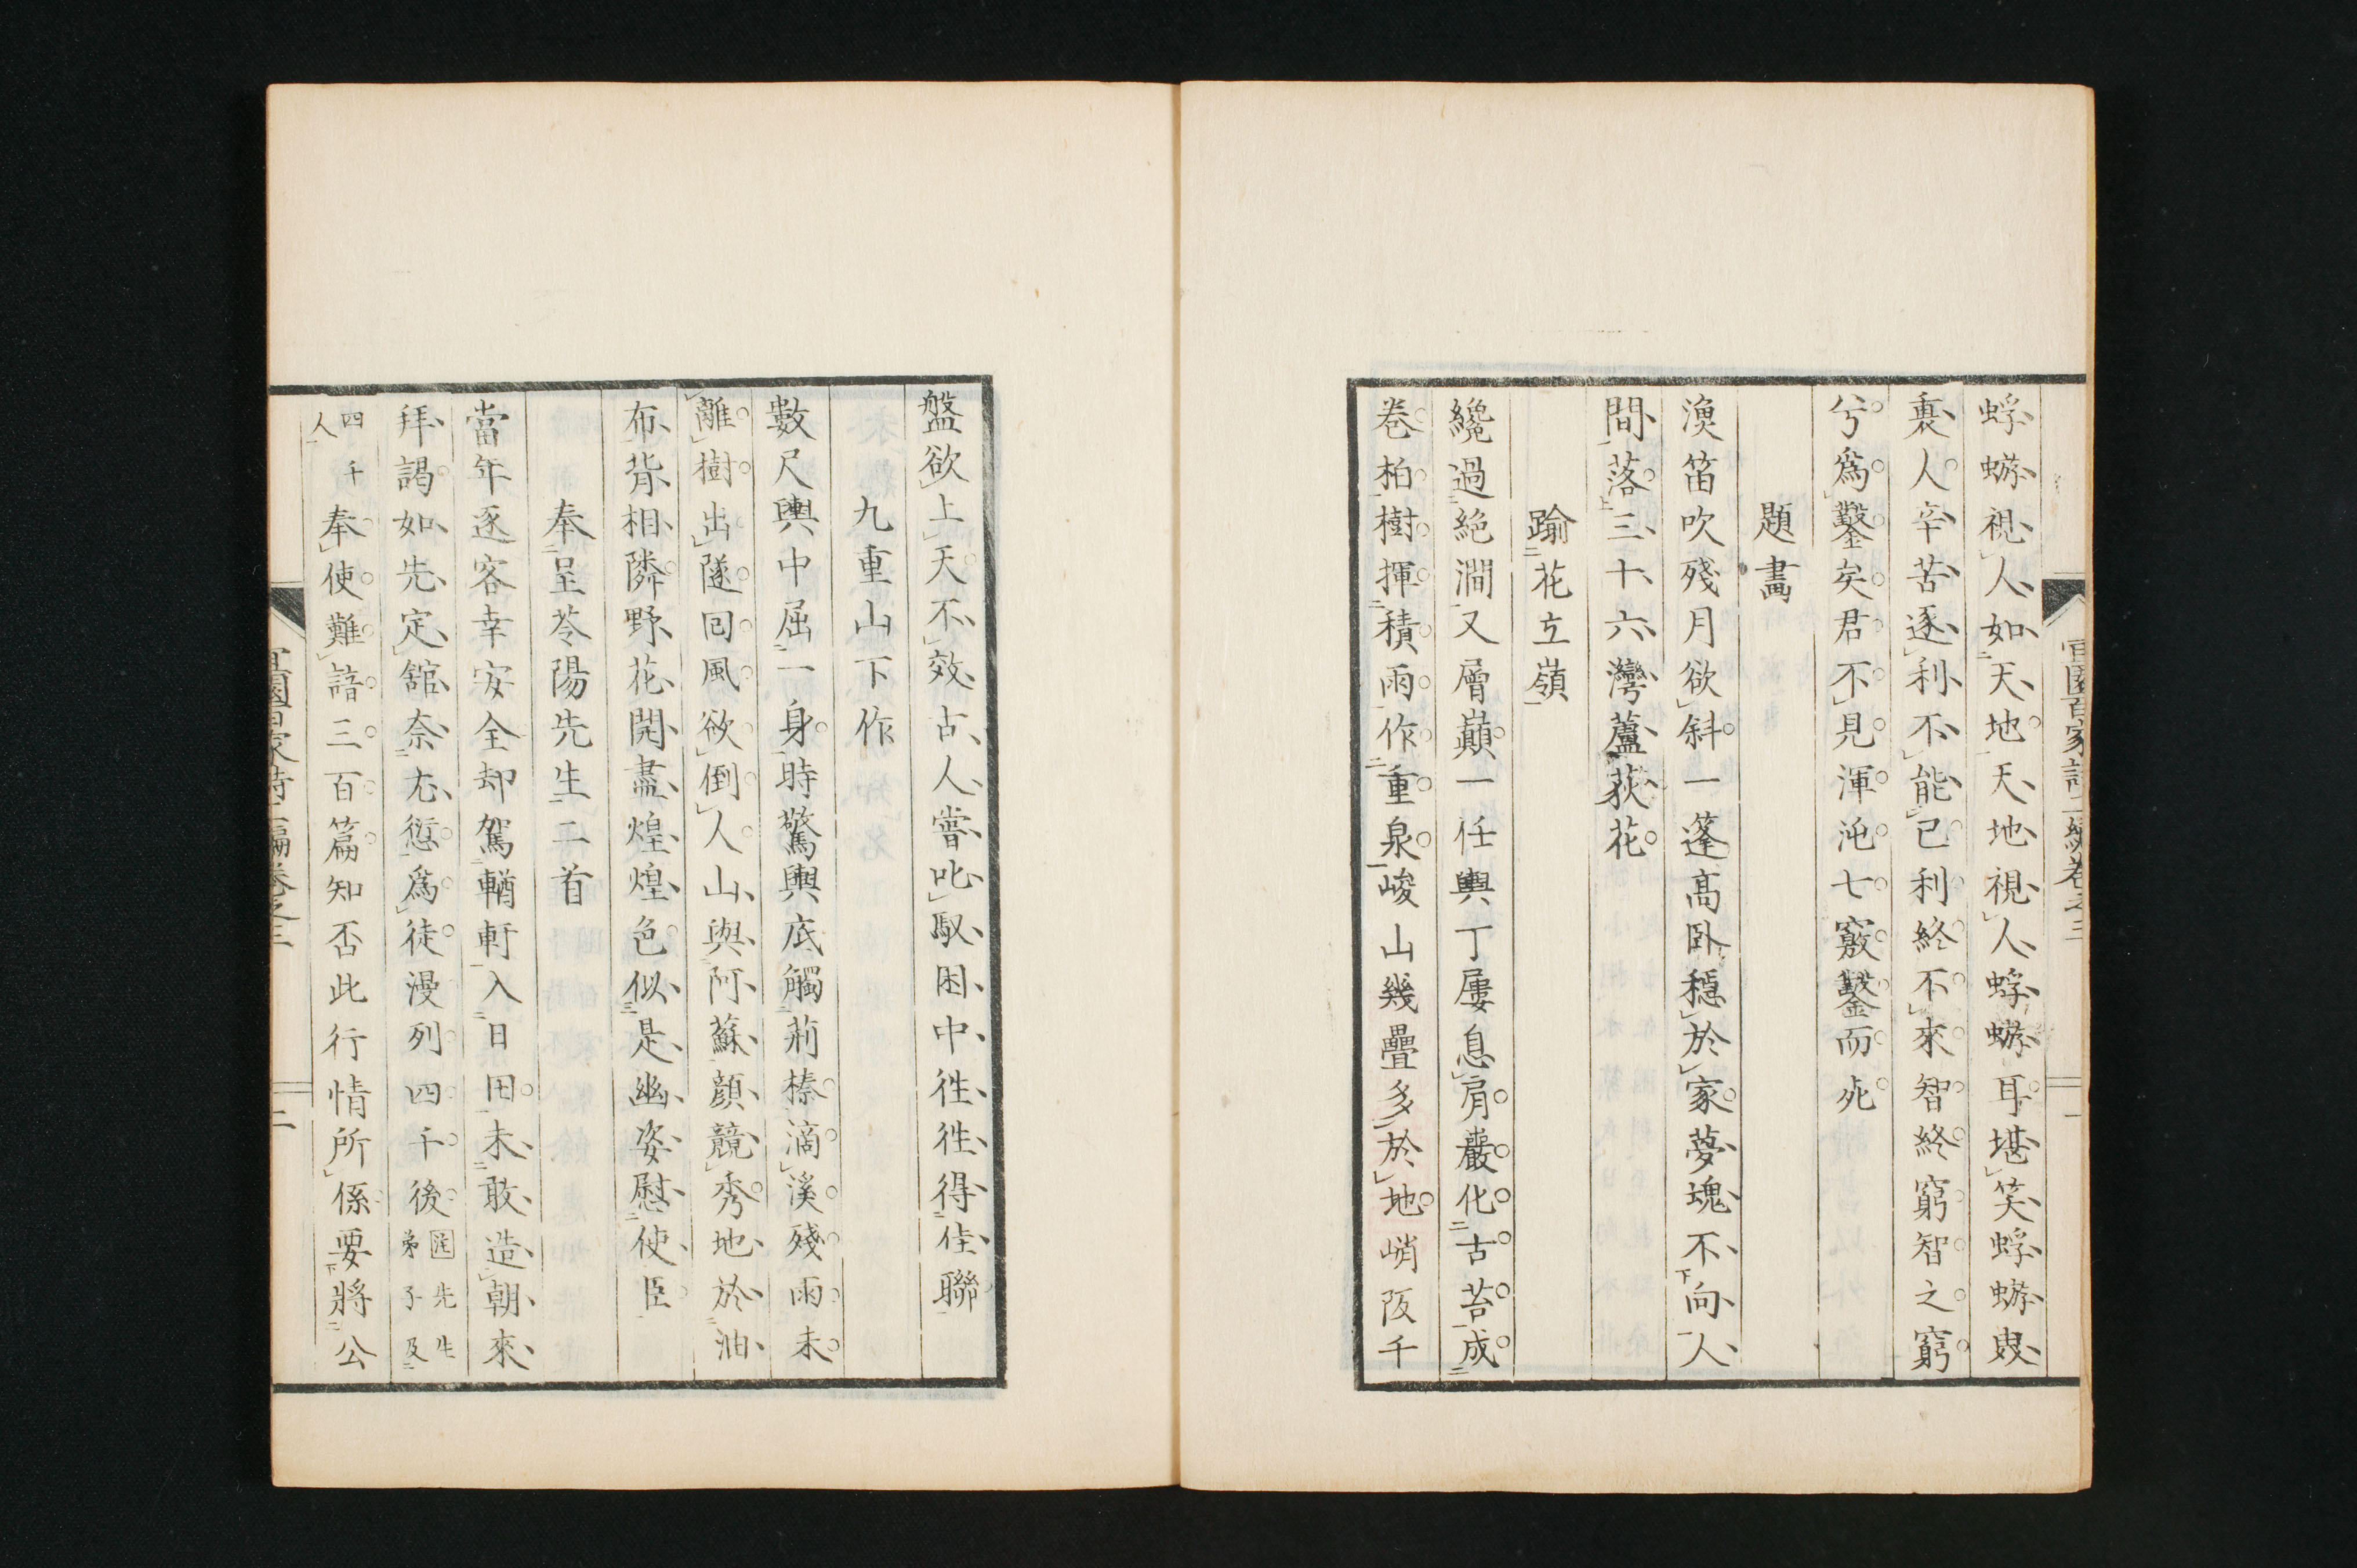 蜉蝣視人如天地天地視人蜉蝣耳堪笑蜉蝣叟
裏人辛苦逐利不能已利終不來智終窮智之窮
兮爲鑿矣君不見渾沌七竅鑿而死
題畵
漁笛吹殘月欲斜一蓬高臥穩於家夢魂不向人
間落三十六灣蘆荻花
踰花立嶺
纔過絕澗又層巔一任輿丁屢息肩巖化古苔成
卷柏樹揮積雨作重泉峻山幾疊多於地峭阪千
盤欲上天不效古人嘗叱馭困中徃徃得佳聯
九重山下作
數尺輿中屈一身時驚輿底觸荊榛滴溪殘雨未
離樹出隧回風欲倒人山與阿蘇顏競秀地於油
布背相隣野花開盡煌煌色似是幽姿慰使臣
奉呈苓陽先生二首
當年逐客幸安全却駕輶軒入日田未敢造朝來
拜謁如先定舘奈尤愆爲徒漫列四千後先生弟子及
四千人奉使難諳三百篇知否此行情所係要將公
宜園百家詩二編卷之三
二